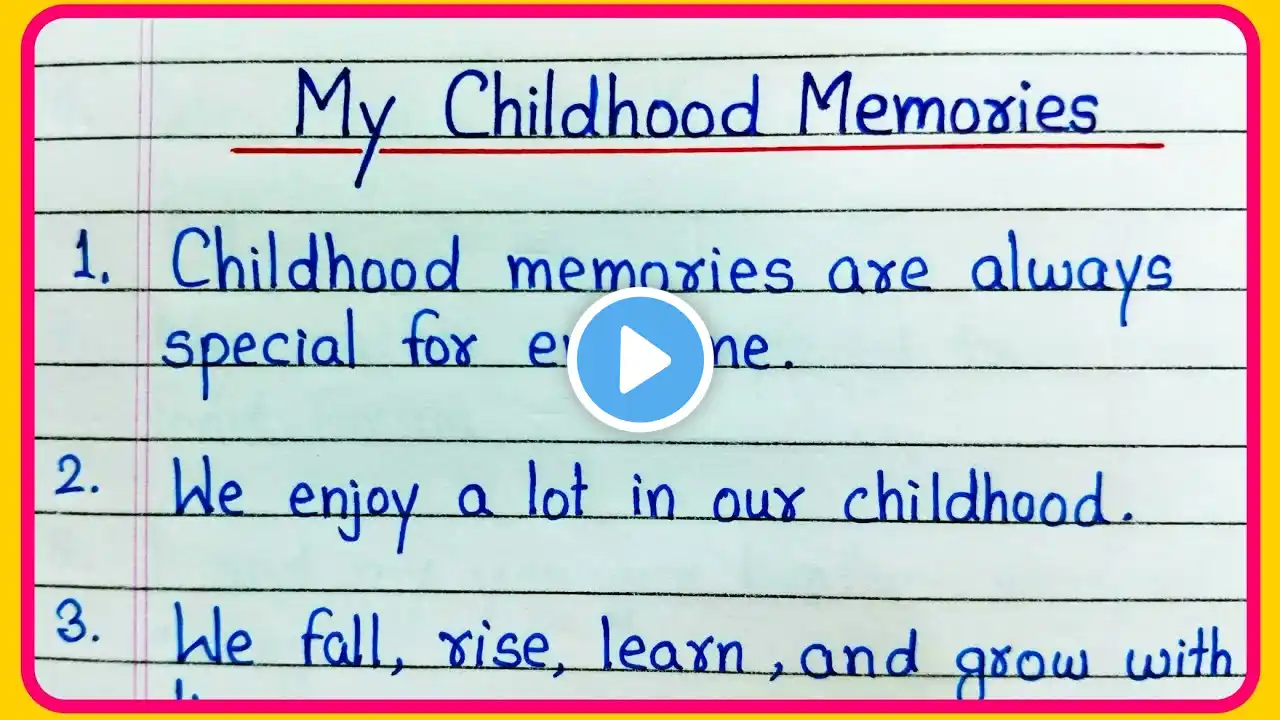 My Childhood Memories
1. Childhood memories are always
special for
2. We enjoy a lot in our childhood.
3. We fall, rise, learn, and grow with